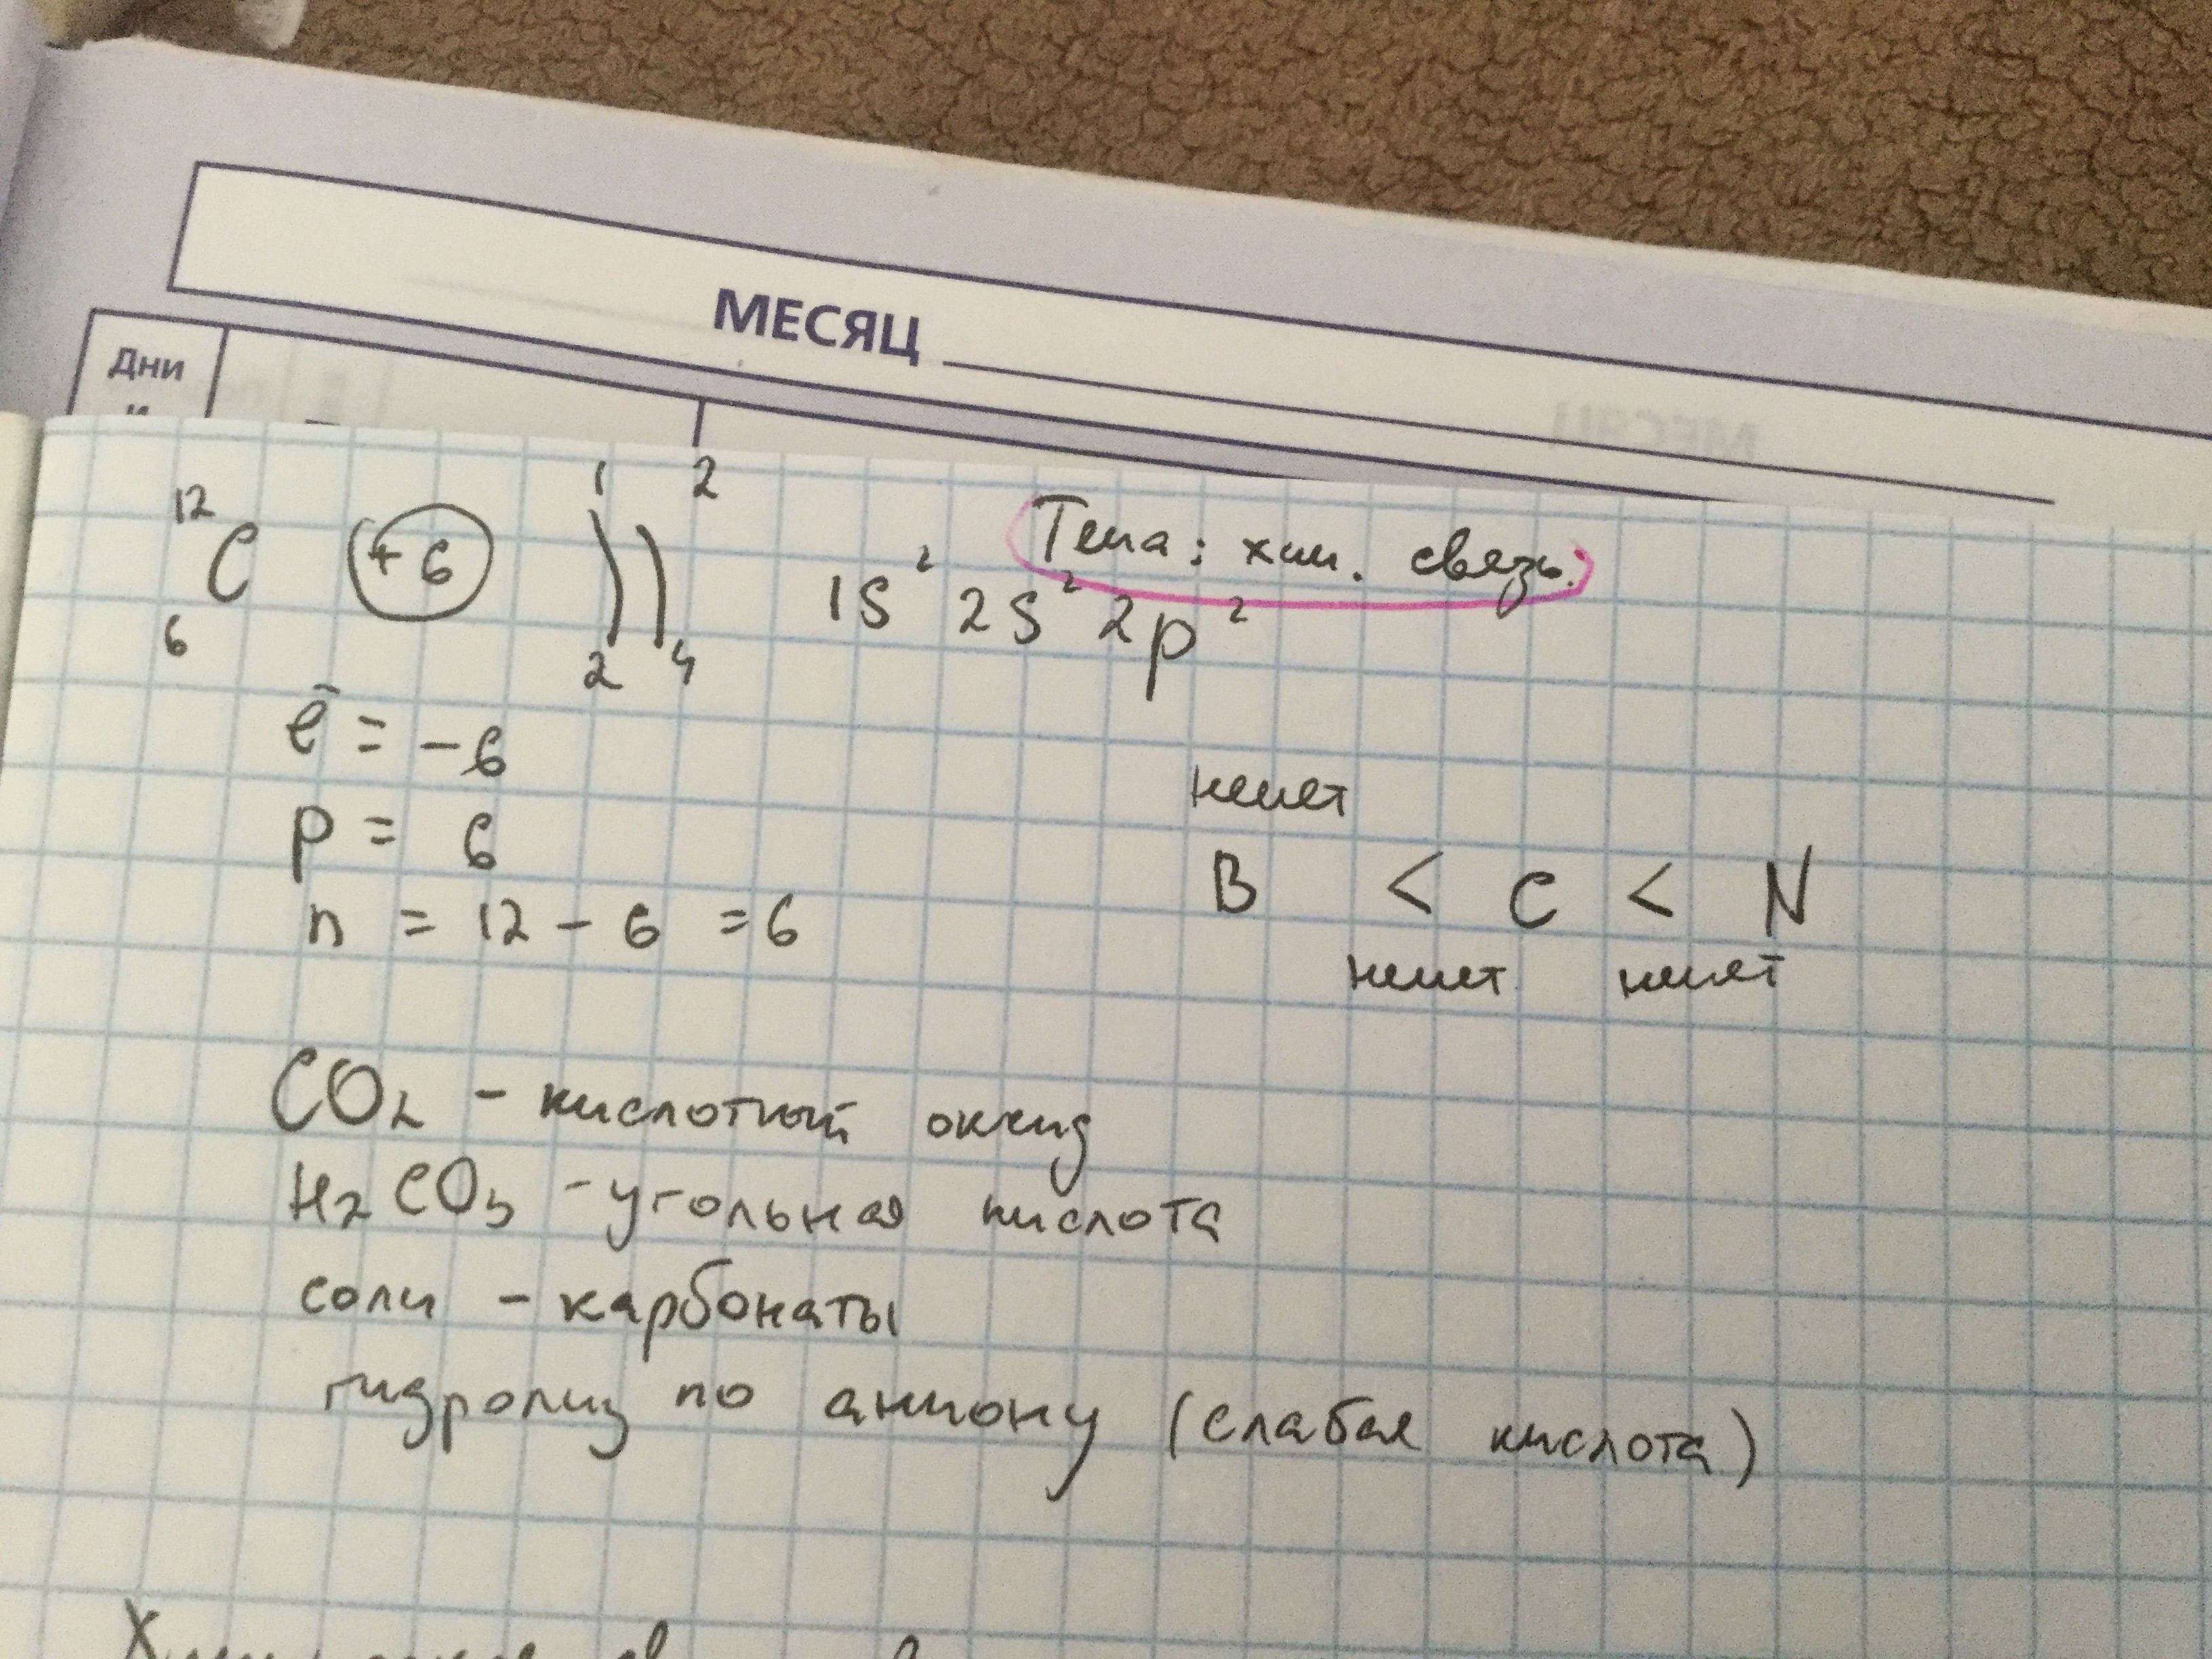 МЕСЯЦ
Дни
и
12 C 6 +6 1 2 2 4
Тема: хим. связь.
1s² 2s² 2p²
ē = -6
p = 6
n = 12 - 6 = 6
немет
B < C < N
немет немет
CO₂ - кислотный оксид
H₂CO₃ - угольная кислота
соли - карбонаты
гидролиз по аниону (слабая кислота)